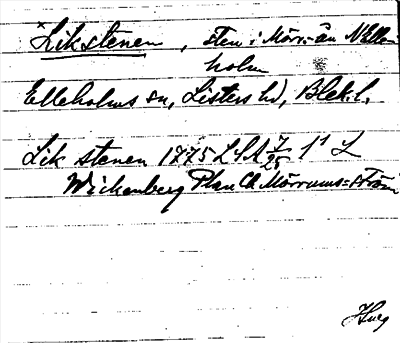 × Likstenen, sten i Mörr.-ån N Elle-
holm
Elleholms sn, Listers hd, Blek. l.
Lik stenen 1775 LSA 7/25 1¹ L
Wickenberg Plan Ch Mörrums=ström